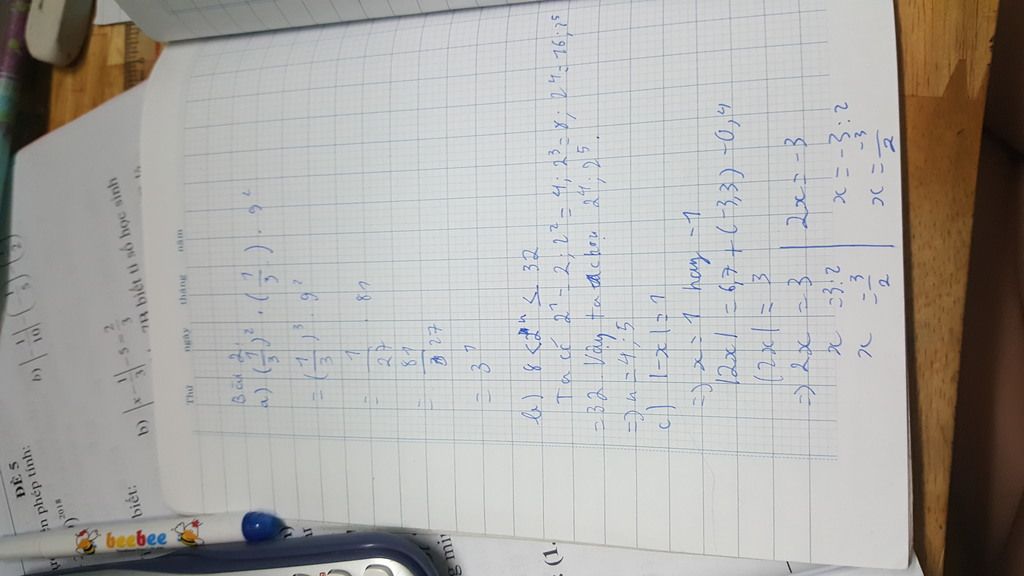 ĐỀ 5
n phép tính:
2018
b) |-1/10| (1/5) (1/2)
biết:
b) |x - 1/3| - 5 = 2/3
7B biết tỉ số học sinh
beebee
Thứ ngày tháng năm
Bài 2:
a) (1/3)² . (1/3) . 9²
= (1/3)³ . 9²
= 1/27 . 81
= 81/27
= 3¹
b) 8 < 2ⁿ ≤ 32
Ta có 2¹ = 2; 2² = 4; 2³ = 8; 2⁴ = 16; 2⁵
= 32 Vậy ta chọn 2⁴; 2⁵.
=> n = 4; 5
c) |-x| = 1
=> x = 1 hay -1
|2x| = 6,7 + (-3,3) - 0,4
|2x| = 3
=> 2x = 3 | 2x = -3
x = 3:2 | x = -3:2
x = 3/2 | x = -3/2